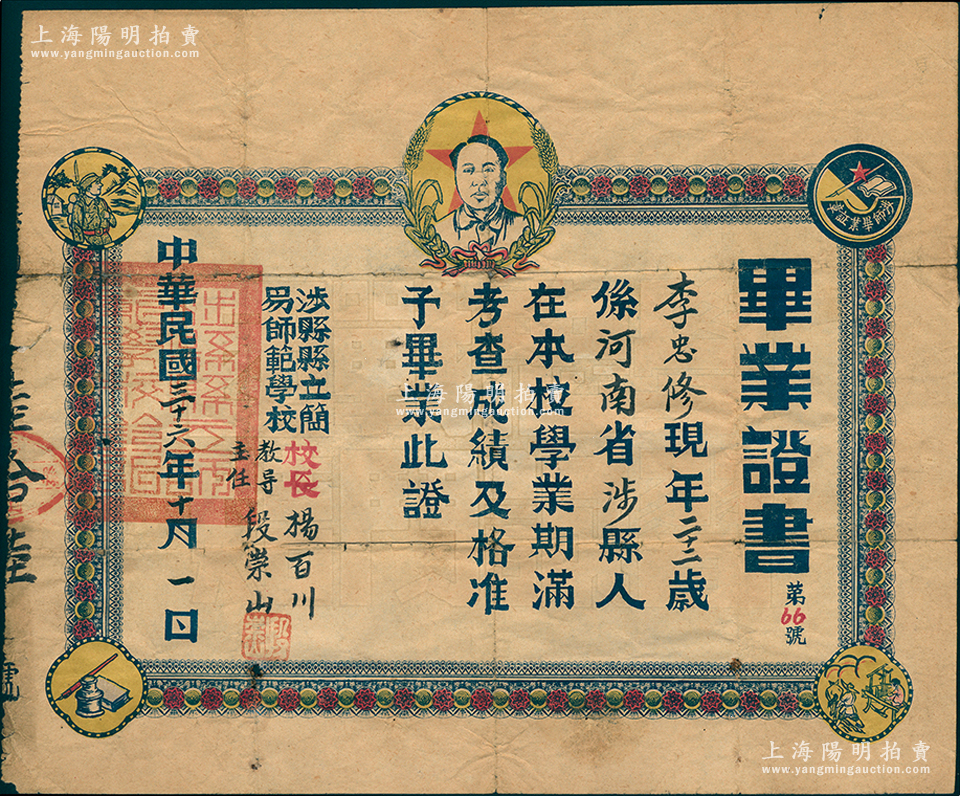 上海陽明拍賣
www.yangmingauction.com
畢業證書
第66號
李忠修現年二十二歲
係河南省涉縣人
在本校學業期滿
考查成績及格准
予畢業此證
涉縣縣立簡
易師範學校
校長 楊百川
教导
主任 段崇山
中華民國三十六年十月一日
拾陸
號
上海陽明拍賣
www.yangmingauction.com
上海陽明拍賣
www.yangmingauction.com